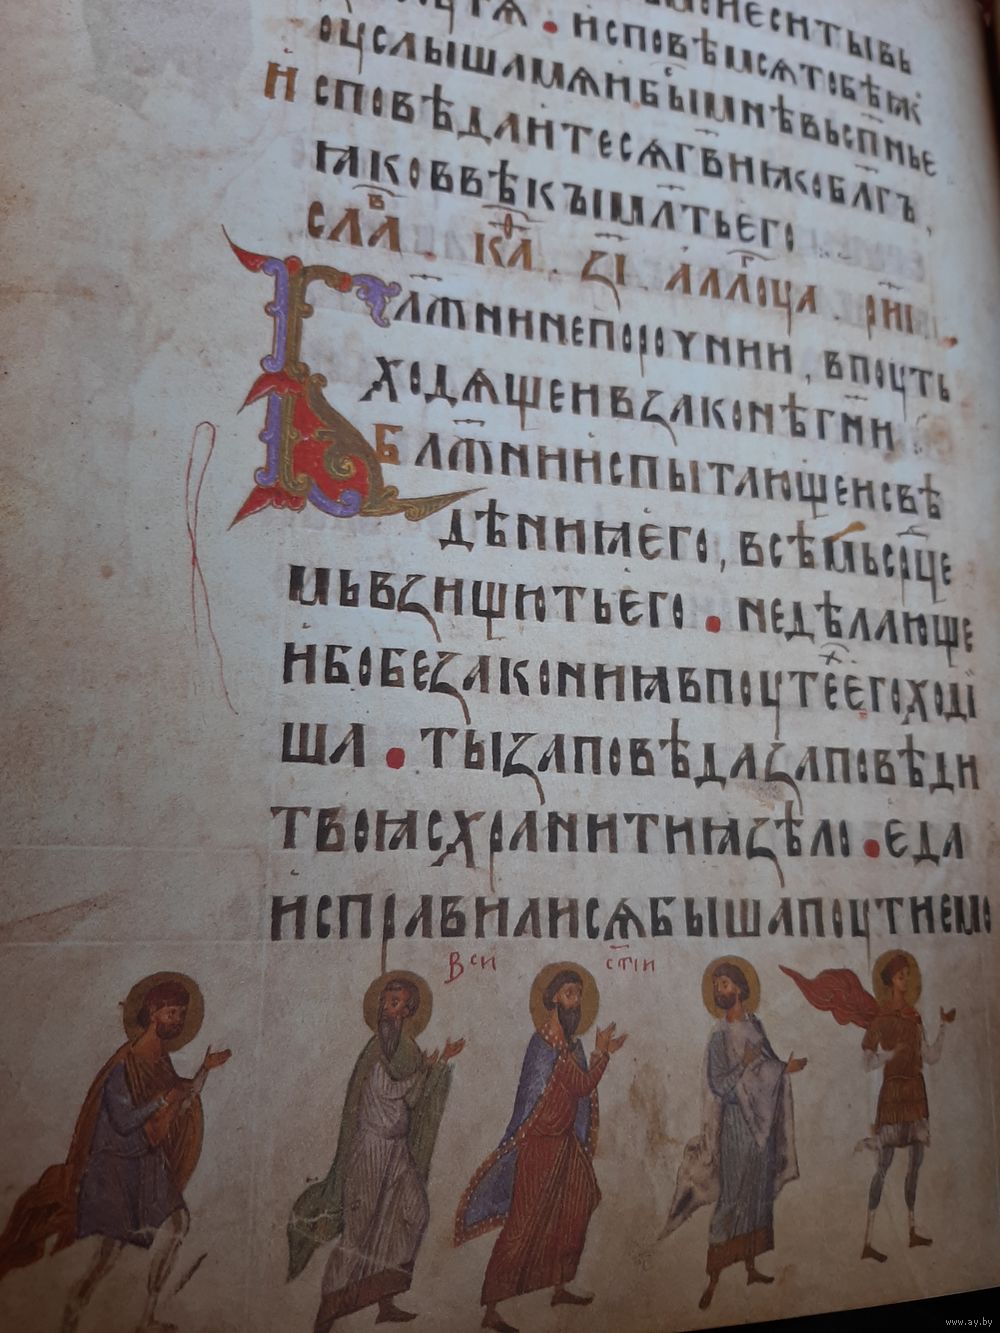 исповѣмсѧтобѣꙗк
оуслышамѧибымнѣвьсп҃нье
Исповѣдаитесѧгв҃иꙗкобл҃гъ,
ꙗковвѣкъімлт҃ьего
сла҃в . ка҃ѳ . з҃і аллл҃гоуꙗ . рн҃і
Блж҃ниинепороүнии, впоуть
ходѧщеивзаконѣгн҃и
Блж҃нииіспытающеисвѣ
дѣниꙗего, всѣмьсрд҃це
мьвзищютьего . недѣлающе
ибобезакониꙗвпоутех҃егоході
ша . тызаповѣдазаповѣди
твоꙗсхранитиꙗзѣло . еда
исправилисѧбышапоутиемо
Вси ст҃іи
www.ay.by